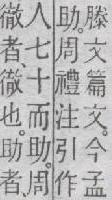 滕文篇文。今孟
助。周禮注引作
人七十而助。周
徹者、徹也。助者、